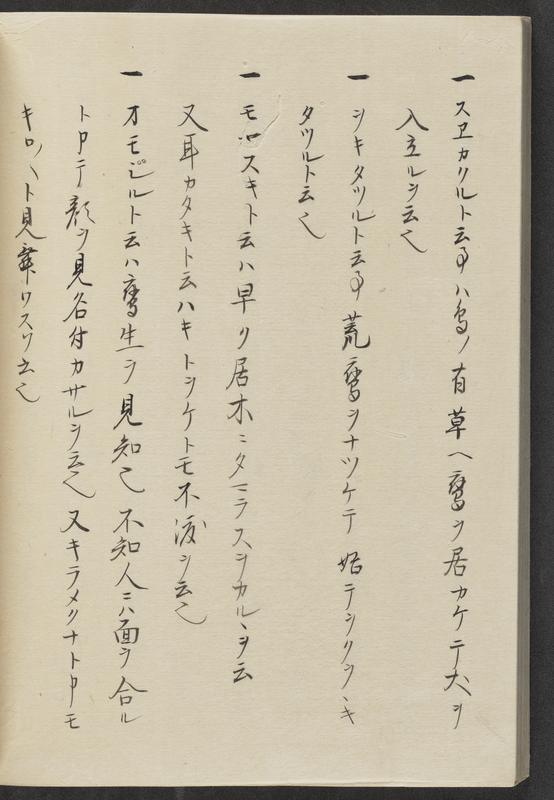 一 スヱカクルト云事ハ鳥ノ有草ヘ鷹ヲ居カケテ犬ヲ
入立ルヲ云也
一 シキタツルト云事荒鷹ヲナツケテ始テシクヲ、キ
タツルト云也
一 モロスキト云ハ早ク居木ニタマラスヲカル、ヲ云
又耳カタキト云ハキトヲケトモ不渡ヲ云也
一 オモヒルト云ハ鷹生ヲ見知也不知人ニハ面ヲ合ル
ト申テ顔ヲ見名付カサルヲ云也又キラメクナト申モ
キロ〳〵ト見舞ワスヲ云也